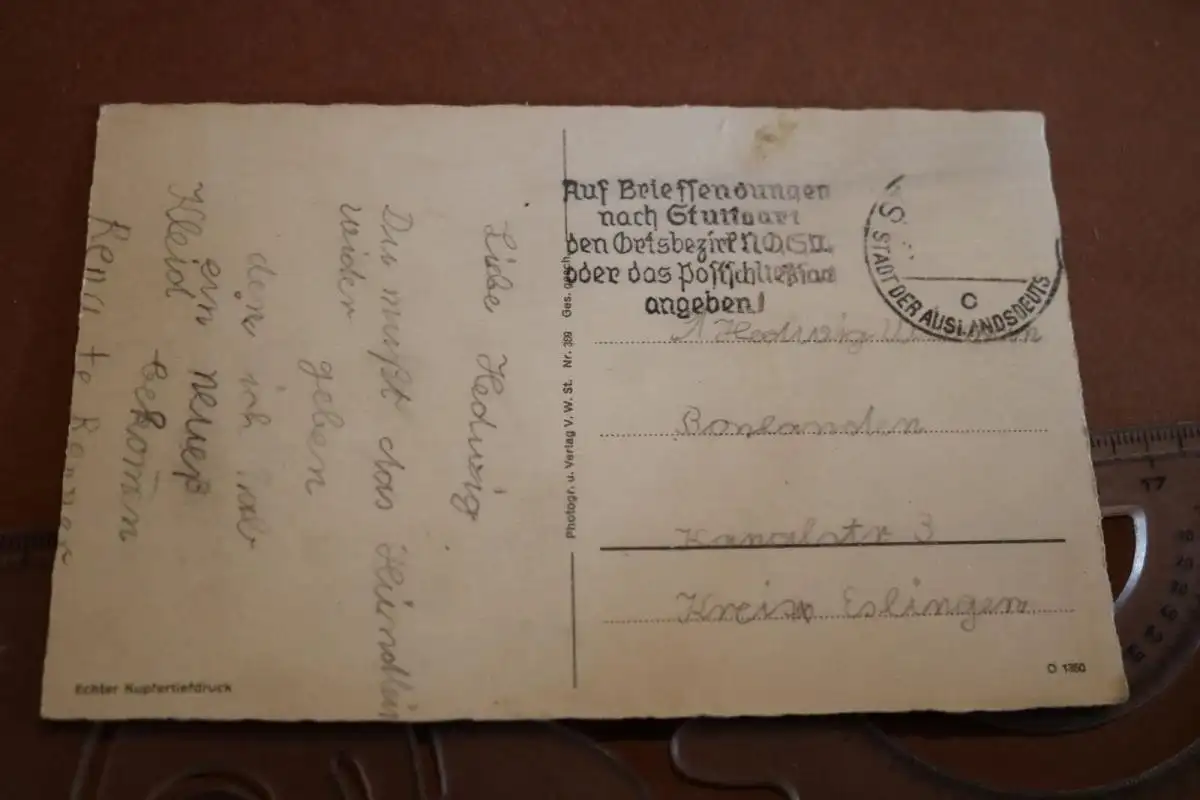 Liebe Hedwig
Du mußt das Kleindlein
wider
geben
den ich hab
ein neueß
Kleid bekomen
Renate Renner
Echter Kupfertiefdruck
Photogr. u. Verlag V. W. St. Nr. 389 Ges. gesch.
Auf Briefsendungen
nach Stuttgart
den Ortsbezirk N,O,S,W.
oder das Postschließfach
angeben!
S
STADT DER AUSLANDSDEUTS
c
Hedwig
Bonlanden
Kanalstr 3
Kreis Eslingen
O 1350